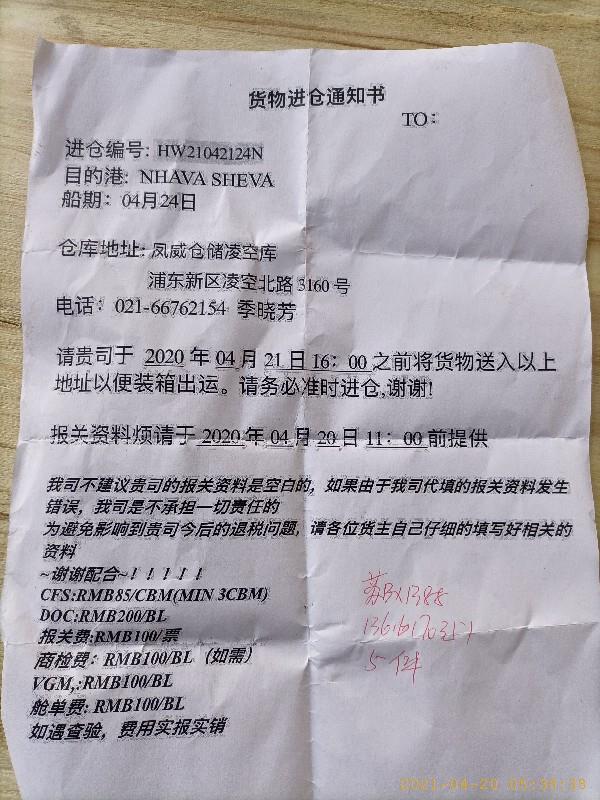 货物进仓通知书
TO:
进仓编号: HW21042124N
目的港: NHAVA SHEVA
船期: 04月24日
仓库地址: 凤威仓储凌空库
浦东新区凌空北路 3160 号
电话: 021-66762154 季晓芳
请贵司于 2020 年 04 月 21 日 16: 00 之前将货物送入以上
地址以便装箱出运。请务必准时进仓,谢谢!
报关资料烦请于 2020 年 04 月 20 日 11: 00 前提供
我司不建议贵司的报关资料是空白的, 如果由于我司代填的报关资料发生
错误, 我司是不承担一切责任的
为避免影响到贵司今后的退税问题, 请各位货主自己仔细的填写好相关的
资料
~谢谢配合~!!!!!
CFS:RMB85/CBM(MIN 3CBM)
DOC:RMB200/BL
报关费:RMB100/票
商检费: RMB100/BL (如需)
VGM,:RMB100/BL
舱单费: RMB100/BL
如遇查验, 费用实报实销
5件